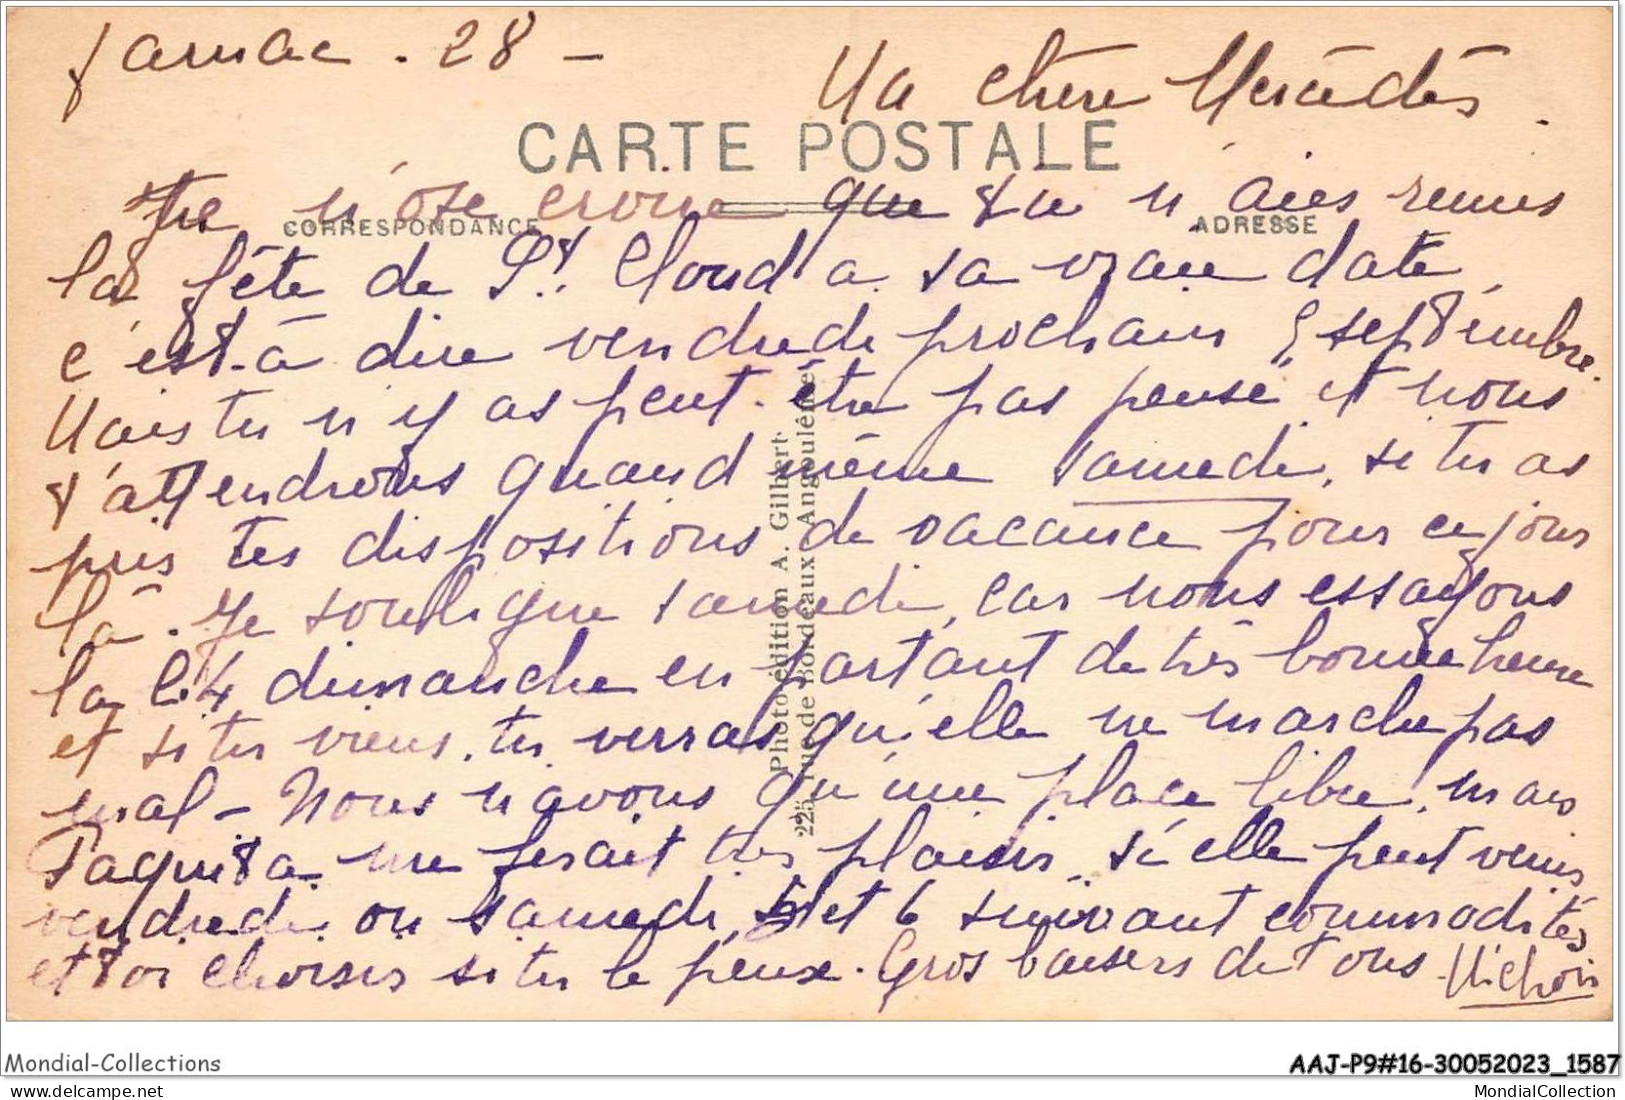 Jarnac . 28 -
Ma chère Mercédès .
CARTE POSTALE
Je n'ose croire que tu n'aies remis
CORRESPONDANCE
ADRESSE
la fête de St. Cloud a sa vraie date,
c'est-à dire vendredi prochain 5 septembre.
Mais tu n'y as peut-être pas pensé et nous
t'attendrons quand même samedi, si tu as
pris tes dispositions de vacance pour ce jour
là. Je souligne samedi, car nous essayons
la C4 dimanche en partant de très bonne heure
et si tu viens, tu verras qu'elle ne marche pas
mal - Nous n'avons qu'une place libre, mais
Paquita me ferait très plaisir si elle peut venir
vendredi ou samedi 5 et 6 suivant commodités
et toi choisis si tu le peux. Gros baisers de tous Michou
Photo-édition A. Gilbert
225, rue de Bordeaux Angoulême
Mondial-Collections
AAJ-P9#16-30052023_1587
www.delcampe.net
MondialCollection